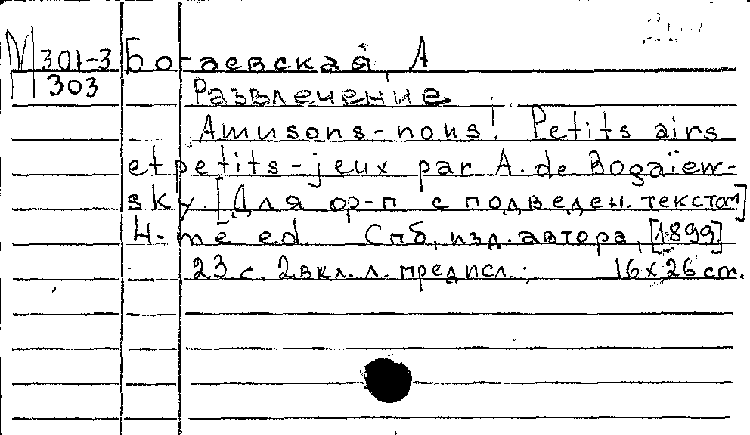 М 301-3 Богаевская, А
303 Развлечение
Amusons-nous! Petits airs
et petits-jeux par A. de Bogaïew-
sky. [Для ф-п с подведен. текстом]
4-me ed. Спб, изд. автора, [1899]
23 с. 2 вкл. л. предисл.; 16x26 cm.